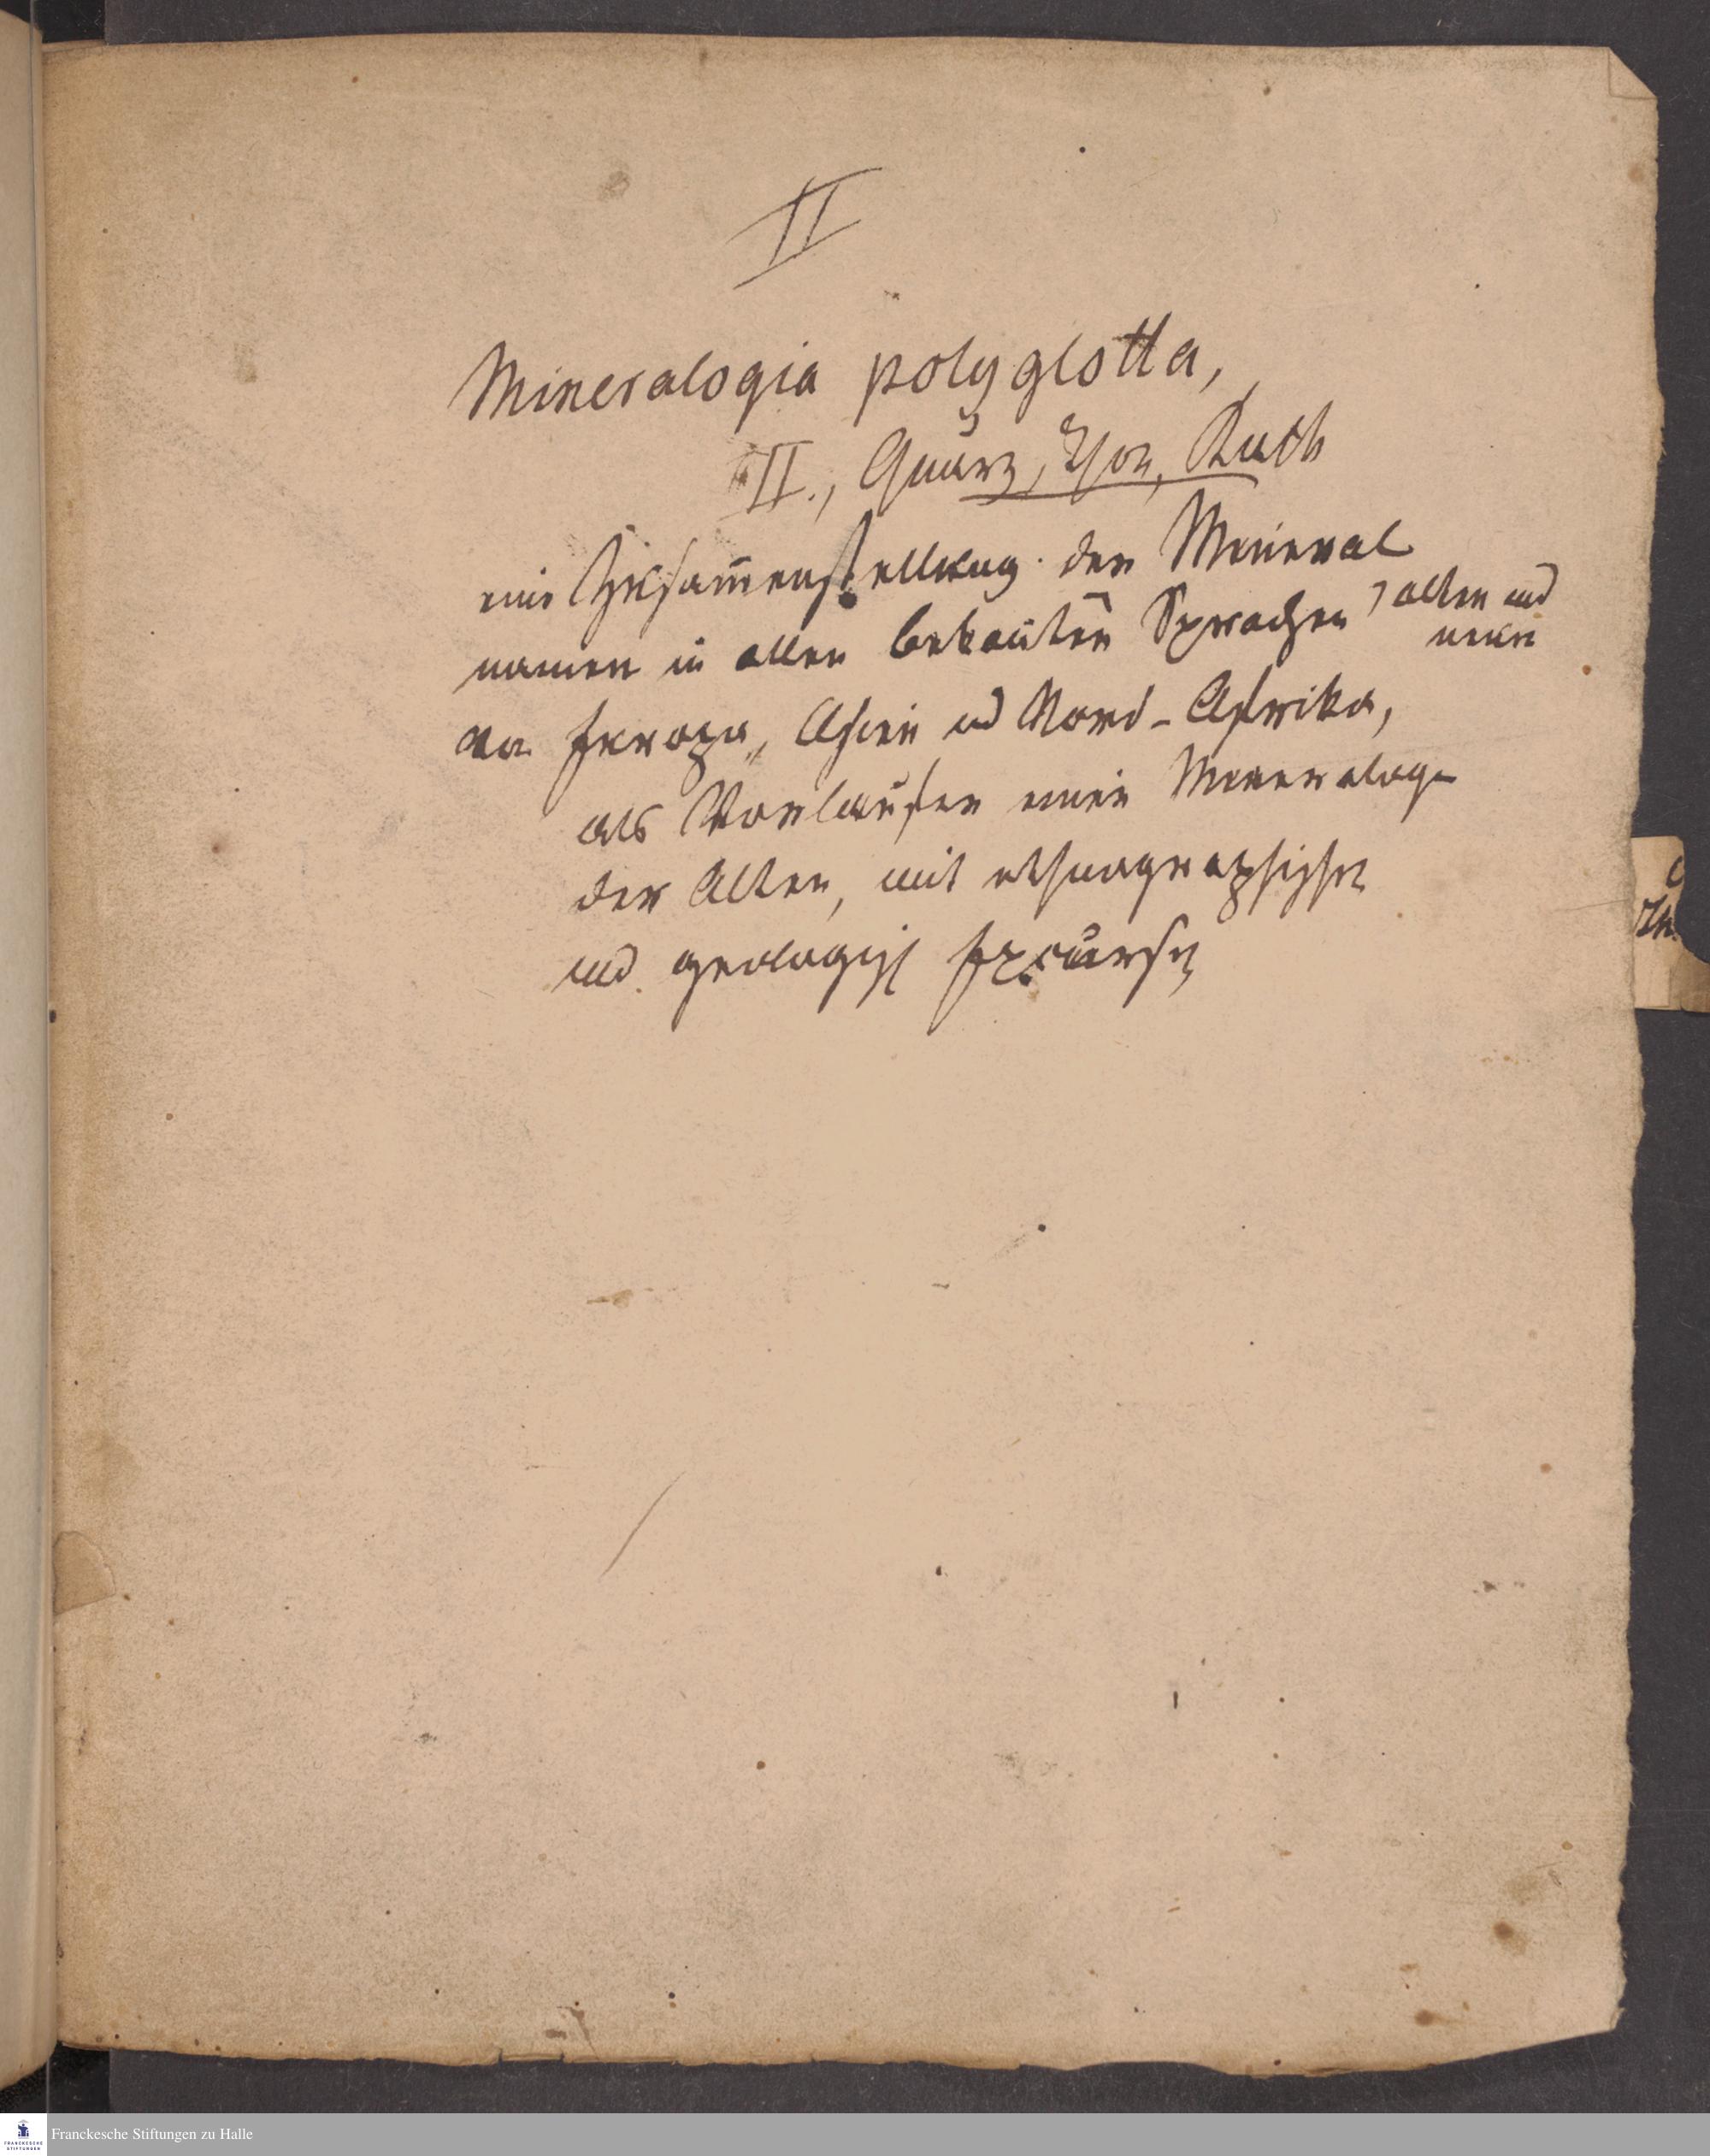 II
Mineralogia polyglotta,
II., Quarz, Thon, Kalk
eine Zusam̄enstellung der Mineral
namen in allen bekan̄ten Sprachen, alten und
neuen
Europa, Asien und Nord-Afrika,
als Vorlaufer einer Mineralog
der Alten, mit ethnographischen
und geologisch Excursen
Franckesche Stiftungen zu Halle
FRANCKESCHE
STIFTUNGEN